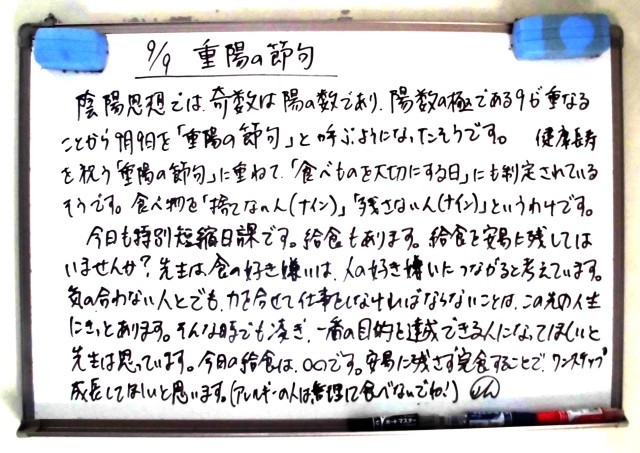 9/9 重陽の節句
陰陽思想では、奇数は陽の数であり、陽数の極である9が重なる
ことから9月9日を「重陽の節句」と呼ぶようになったそうです。 健康長寿
を祝う「重陽の節句」に重ねて、「食べものを大切にする日」にも制定されている
そうです。食べ物を「捨てない人(ナイン)」「残さない人(ナイン)」というわけです。
今日も特別短縮日課です。給食もあります。給食を安易に残しては
いませんか?先生は食の好き嫌いは、人の好き嫌いにつながると考えています。
気の合わない人とでも、力を合せて仕事をしなければならないことは、この先の人生
にきっとあります。そんな時でも凌ぎ、一番の目的を達成できる人になってほしいと
先生は思っています。今日の給食は、○○です。安易に残さず完食することで、ワンステップ
成長してほしいと思います。(アレルギーの人は無理して食べないでね!)